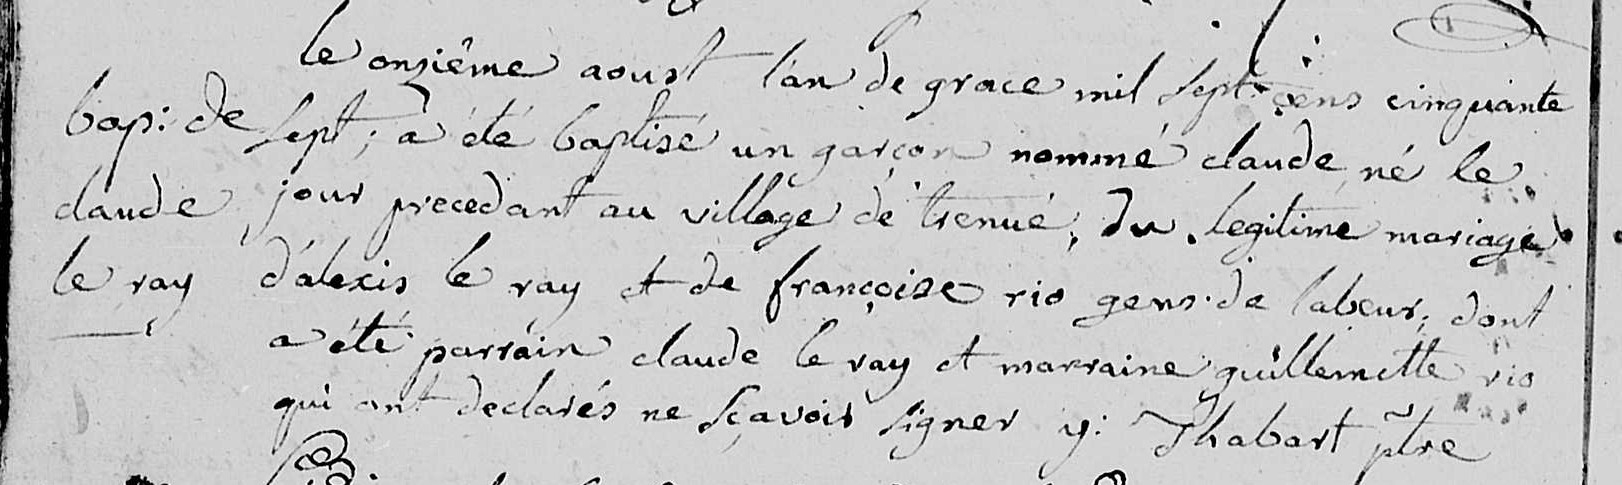 le onziême aoust l'an de grace mil sept cens cinquante
bap: de
claude
le ray
sept, a été baptisé un garçon nommé claude né le
jour precedant au village de trenué, du legitime mariage
d'alexis le ray et de françoise rio gens de labeur, dont
a été parrain claude le ray et marraine guillemette rio
qui ont declarés ne sçavoir signer y: Thabart ptre